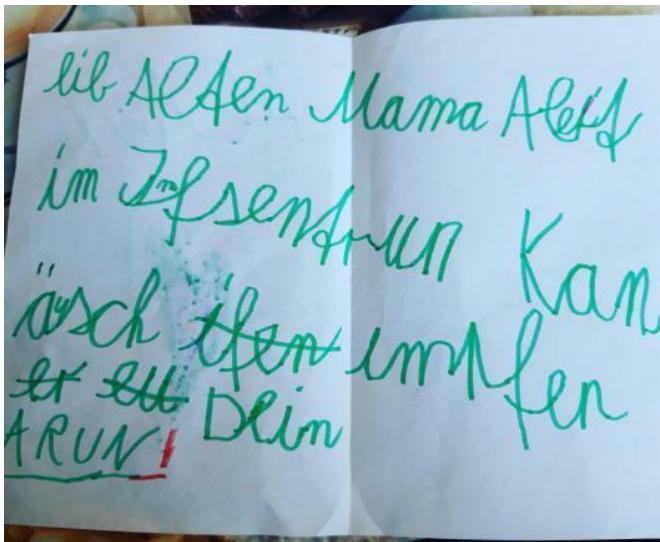 lib Alten Mama Aleit
im Imfsentrun Kan
äusch ifen impfen
er eu Dein
ARUN!